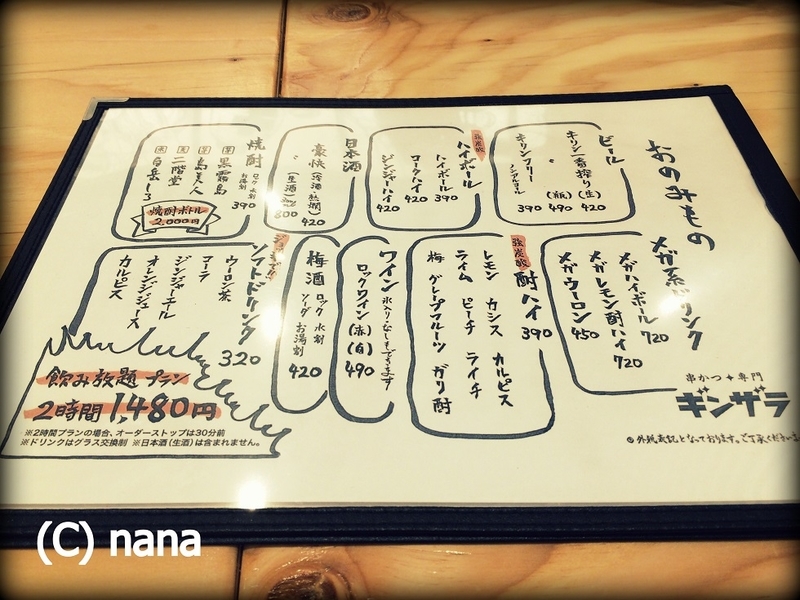 おのみもの
ビール
キリン一番搾り(生) 420
(瓶) 490
キリンフリー
ノンアルコール 390
強炭酸
ハイボール
ハイボール 390
コークハイ 420
ジンジャーハイ 420
日本酒
豪快 (冷酒・熱燗) 420
〃 (生酒) 800
焼酎
ロック 水割 お湯割 390
黒霧島
島美人
二階堂
白岳しろ
焼酎ボトル
2,000円
メガ系ドリンク
メガハイボール 720
メガレモン酎ハイ 720
メガウーロン 450
強炭酸
酎ハイ 390
レモン カシス カルピス
ライム ピーチ ライチ
梅 グレープフルーツ ガリ酎
ワイン
氷入り・なしもできます!
ロックワイン (赤) (白) 490
梅酒 ロック 水割 ソーダ お湯割 420
ソフトドリンク 320
ウーロン茶
コーラ
ジンジャーエール
オレンジジュース
カルピス
飲み放題プラン
2時間 1,480円
※2時間プランの場合、オーダーストップは30分前
※ドリンクはグラス交換制 ※日本酒(生酒)は含まれません。
串かつ 専門
ギンザラ
外税表記となっております。ご了承ください
(C) nana